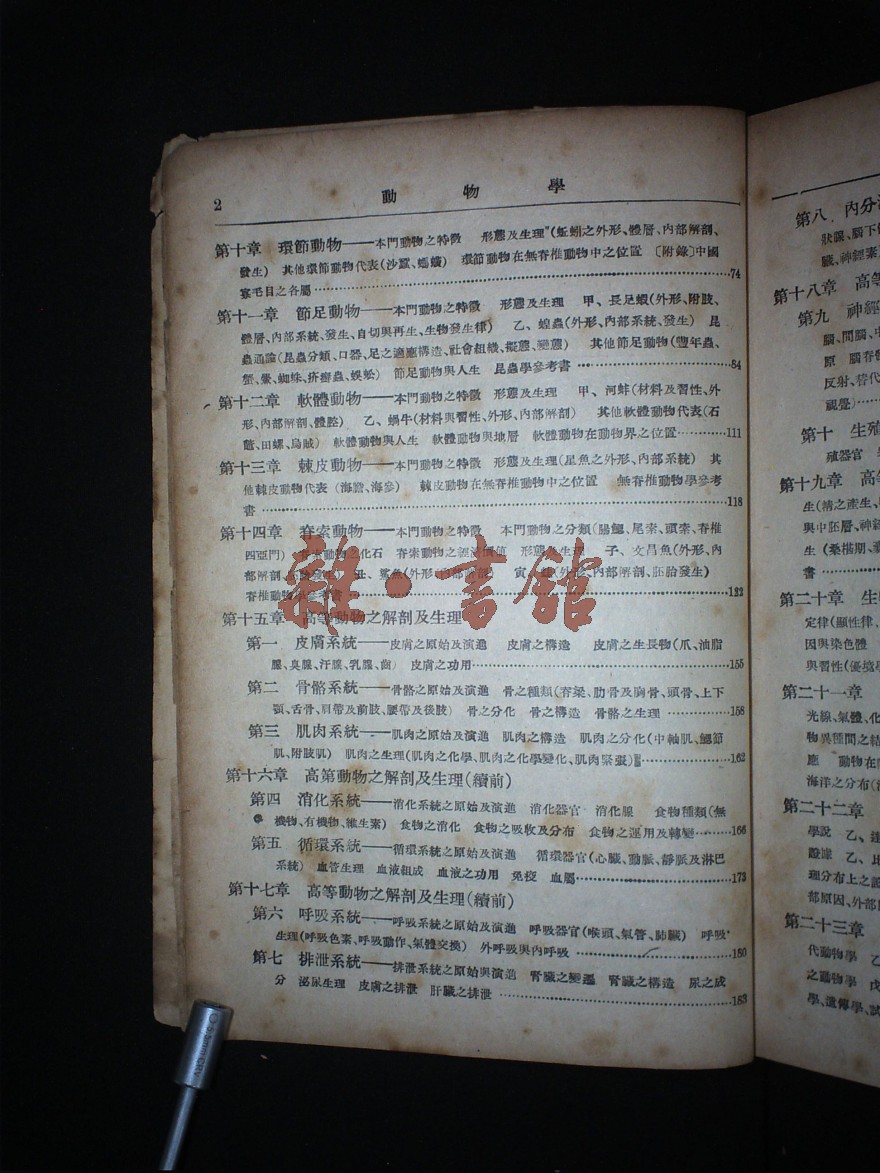 2
動物學
第十章 環節動物——本門動物之特徵 形態及生理(蚯蚓之外形、體層、內部解剖、
發生) 其他環節動物代表(沙蠶、螞蟥) 環節動物在無脊椎動物中之位置 〔附錄〕中國
寡毛目之各屬……74
第十一章 節足動物——本門動物之特徵 形態及生理 甲、長足蝦(外形、附肢、
體層、內部系統、發生、自切與再生、生物發生律) 乙、蝗蟲(外形、內部系統、發生) 昆
蟲通論(昆蟲分類、口器、足之適應構造、社會組織、擬態、變態) 其他節足動物(豐年蟲、
蟹、鱟、蜘蛛、疥癬蟲、蜈蚣) 節足動物與人生 昆蟲學參考書……84
第十二章 軟體動物——本門動物之特徵 形態及生理 甲、河蚌(材料及習性、外
形、內部解剖、體腔) 乙、蝸牛(材料與習性、外形、內部解剖) 其他軟體動物代表(石
鼈、田螺、烏賊) 軟體動物與人生 軟體動物與地層 軟體動物在動物界之位置……111
第十三章 棘皮動物——本門動物之特徵 形態及生理(星魚之外形、內部系統) 其
他棘皮動物代表(海膽、海參) 棘皮動物在無脊椎動物中之位置 無脊椎動物學參考
書……118
第十四章 脊索動物——本門動物之特徵 本門動物之分類(腸鰓、尾索、頭索、脊椎
四亞門) 動物之化石 脊索動物之經濟價值 形態及生理 子、文昌魚(外形、內
部解剖、胚胎發生) 丑、鯊魚(外形、內部解剖) 寅、(外形、內部解剖、胚胎發生)
脊椎動物學參考書……122
雜·書館
第十五章 高等動物之解剖及生理
第一 皮膚系統——皮膚之原始及演進 皮膚之構造 皮膚之生長物(爪、油脂
腺、臭腺、汗腺、乳腺、齒) 皮膚之功用……155
第二 骨骼系統——骨骼之原始及演進 骨之種類(脊梁、肋骨及胸骨、頭骨、上下
顎、舌骨、肩帶及前肢、腰帶及後肢) 骨之分化 骨之構造 骨骼之生理……158
第三 肌肉系統——肌肉之原始及演進 肌肉之構造 肌肉之分化(中軸肌、鰓節
肌、附肢肌) 肌肉之生理(肌肉之化學、肌肉之化學變化、肌肉緊張)……162
第十六章 高第動物之解剖及生理(續前)
第四 消化系統——消化系統之原始及演進 消化器官 消化腺 食物種類(無
機物、有機物、維生素) 食物之消化 食物之吸收及分布 食物之運用及轉變……166
第五 循環系統——循環系統之原始及演進 循環器官(心臟、動脈、靜脈及淋巴
系統) 血管生理 血液組成 血液之功用 免疫 血屬……173
第十七章 高等動物之解剖及生理(續前)
第六 呼吸系統——呼吸系統之原始及演進 呼吸器官(喉頭、氣管、肺臟) 呼吸
生理(呼吸色素、呼吸動作、氣體交換) 外呼吸與內呼吸……180
第七 排泄系統——排泄系統之原始與演進 腎臟之變遷 腎臟之構造 尿之成
分 泌尿生理 皮膚之排泄 肝臟之排泄……183
第八 內分
狀腺、腦下
臟、神經素)
第十八章 高等
第九 神經
腦、間腦、中
原 腦脊
反射、替代
視覺)……
第十 生殖
殖器官
第十九章 高
生(精之產生、
與中胚層、神經
生(桑椹期、
書……
第二十章 生
定律(顯性律、
因與染色體
與習性(優境學
第二十一章
光線、氣體、化
物異種間之
應 動物在
海洋之分布(
第二十二章
學說 乙、達
證 乙、比
理分布上之證
部原因、外部
第二十三章
代動物學 乙
之動物學 戊
學、遺傳學、試